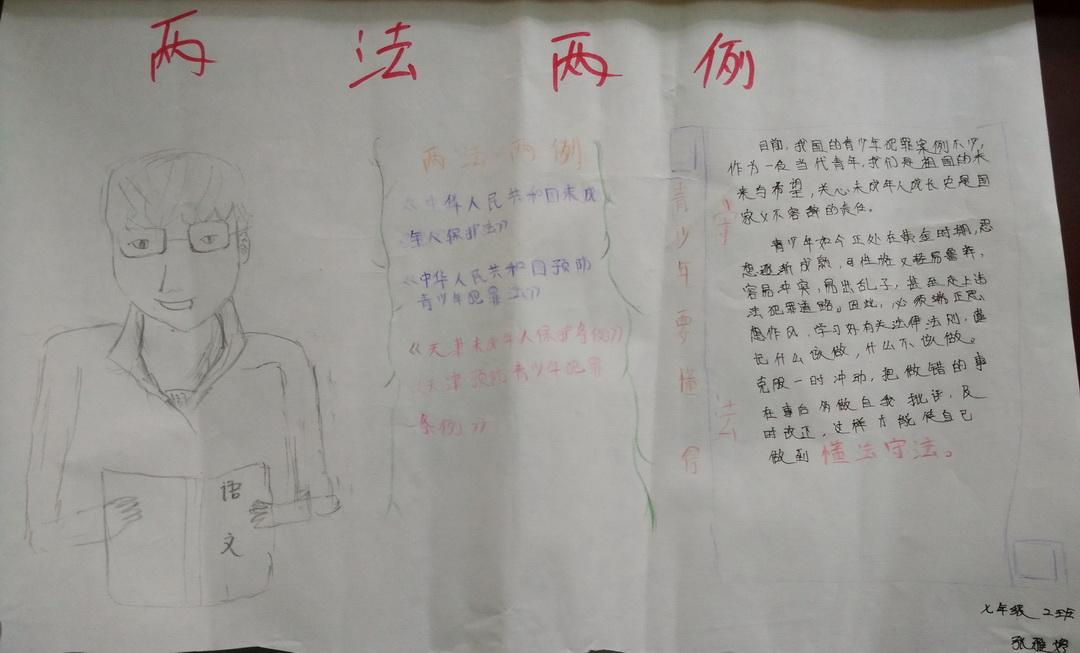 两法两例
语
文
两法两例
《中华人民共和国未成
年人保护法》
《中华人民共和国预防
青少年犯罪法》
《天津未成年人保护条例》
《天津预防青少年犯罪
条例》
青少年要懂得
守法
目前，我国的青少年犯罪案例不少，
作为一位当代青年，我们是祖国的未
来与希望，关心未成年人成长更是国
家义不容辞的责任。
青少年如今正处在黄金时期，思
想逐渐成熟，可性格又极易鲁莽，
容易冲突，易出乱子，甚至走上违
法犯罪道路。因此，必须端正思
想作风，学习好有关法律法则，谨
记什么该做，什么不该做。
克服一时冲动，把做错的事
在事后多做自我批评，及
时改正，这样才能使自己
做到懂法守法。
七年级 2班
张雅婷